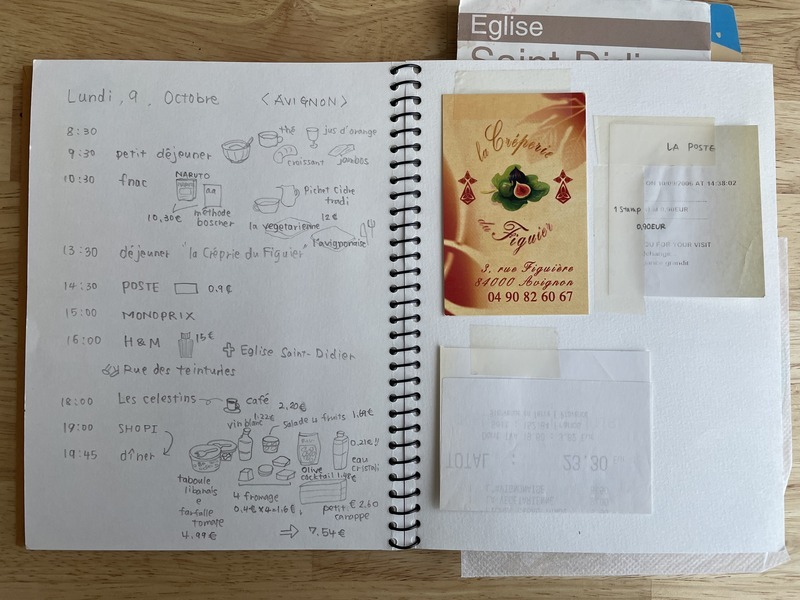 Eglise
Saint-Didier
Lundi, 9, Octobre <AVIGNON>
8:30 thé jus d'orange
9:30 petit déjeuner croissant jambos
10:30 fnac NARUTO Pichet Cidre
tradi
10,30€ méthode
boscher 12€
la vegetarienne
l'avignonaise
13:30 déjeuner "la Crêprie du Figuier"
14:30 POSTE 0.9€
15:00 MONOPRIX
16:00 H&M 15€ Eglise Saint-Didier
Rue des teinturies
18:00 Les celestins café 2,20€
19:00 SHOPI vin blanc 1.22€ salade 4 fruits 1.69€
0.21€!!
19:45 dîner
eau
cristali
olive
cocktail 1.98€
taboule
libanais
e
farfalle
tomate
4.99€
4 fromage
0.4€×4=1.6€
petit € 2.60
carappe
⇒ 7.54€
la Crêperie
du Figuier
3, rue Figuière
84000 Avignon
04 90 82 60 67
LA POSTE
AT 14:38:02
1 Stamp
0,90EUR
FOR YOUR VISIT
TOTAL : 23.30